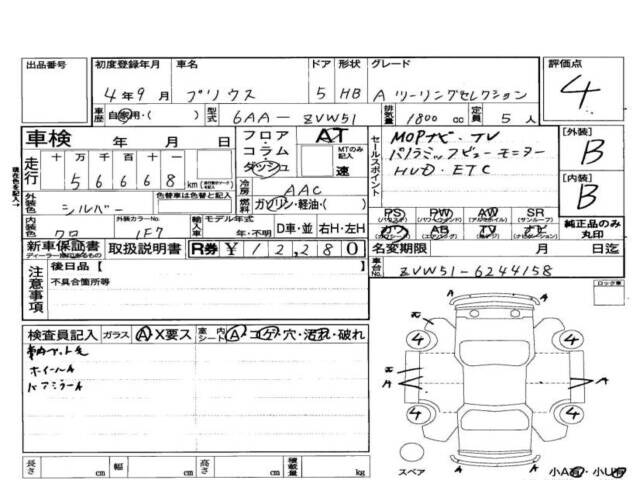 出品番号 初度登録年月 車名 ドア 形状 グレード 評価点
4年9月 プリウス 5 HB A ツーリングセレクション 4
車歴 自家用・( ) 型式 6AA-ZVW51 排気量 1800 cc 定員 5 人
車検 年 月 日 フロア AT セールスポイント MOPナビ・TV [外装]
走行 十 万 千 百 十 一 コラム MTのみ記入 パノラミックビューモニター B
5 6 6 6 8 km ダッシュ 速 HUD・ETC [内装]
現在色を記入→ 外装色 シルバー 色替車は色替と記入 冷房 AAC B
燃料 ガソリン・軽油・( ) PS PW AW SR 純正品のみ丸印
内装色 クロ 外装カラーNo. 1F7 輸入車 モデル年式 年・不明 D車・並 右H・左H カワ AB TV ナビ
新車保証書 ディーラー印にあるもの 取扱説明書 R券 ¥12,280 名変期限 月 日迄
注意事項 後日品【 】 車台No. ZVW51-6244158
不具合箇所等 ロック車
検査員記入 ガラス A X要ス 室内 シート A・コゲ・穴・汚れ・破れ
ホイールA
バアミラーA
4 4
A A
4 4
A A
長さ cm 幅 cm 高さ cm 積載量 kg スペア 小A有・小U有